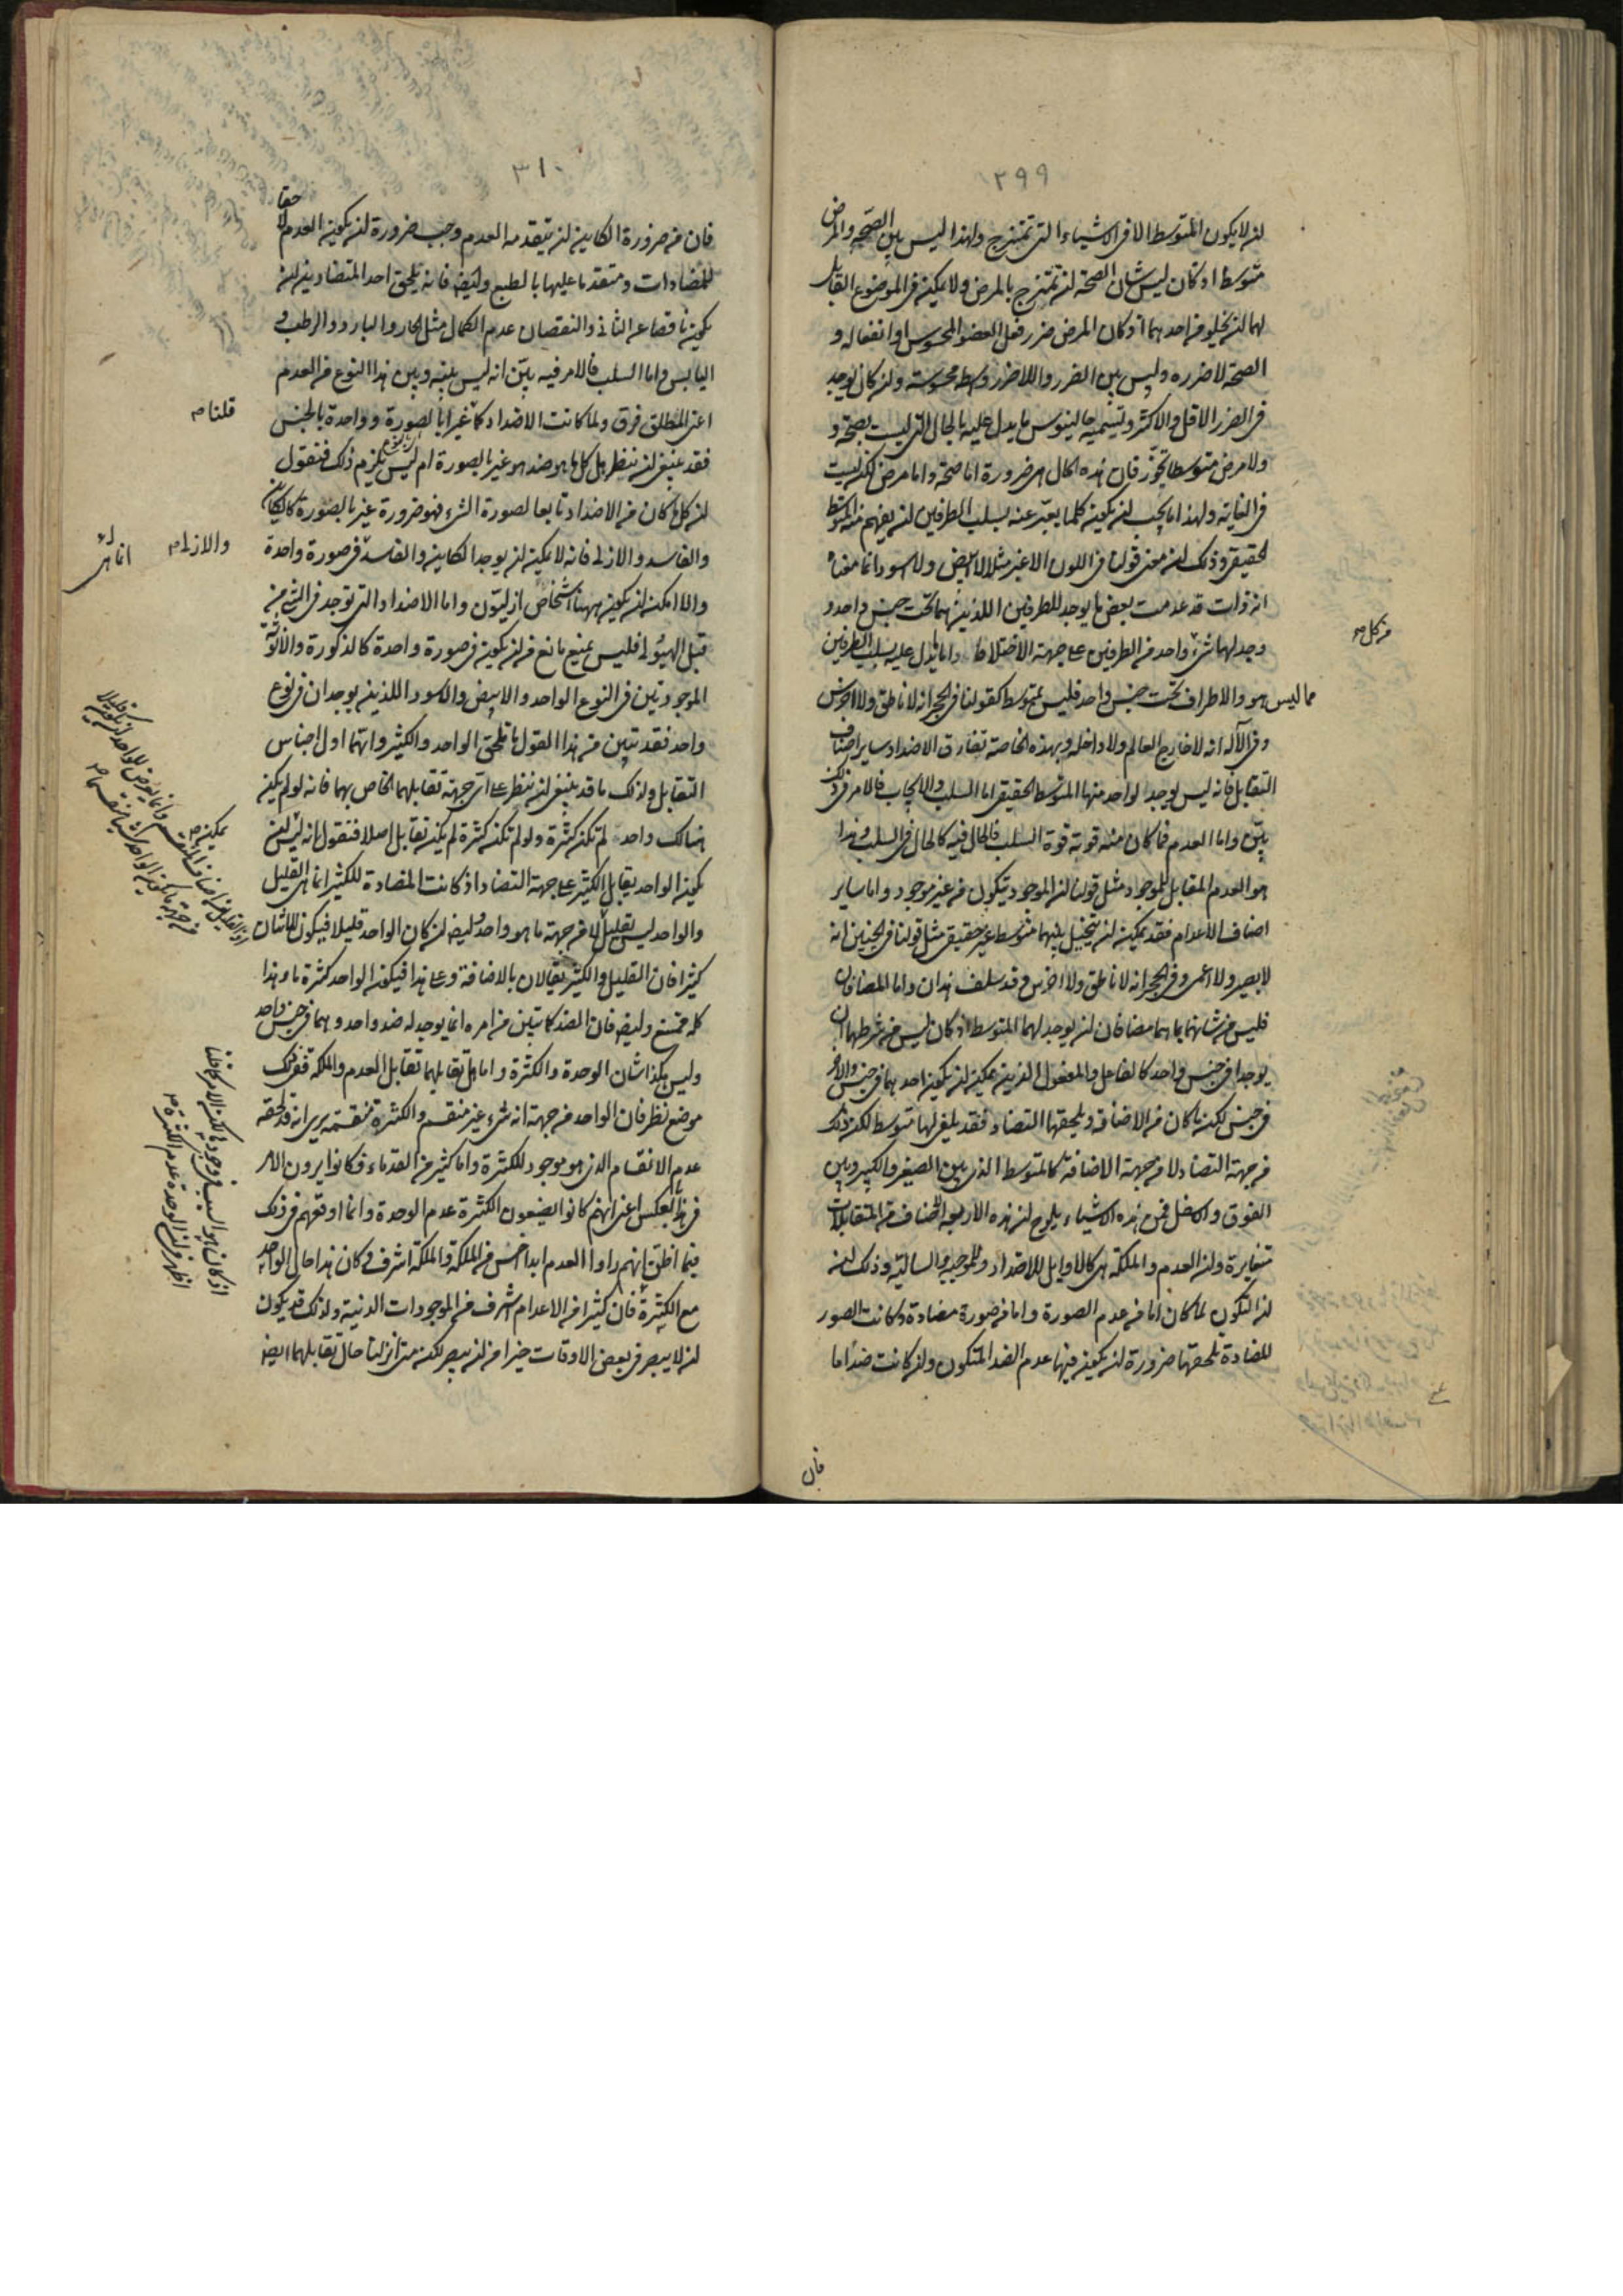 ٢٩٩
لن لا يكون المتوسط الا فى الاشياء التى تمتزج ولهذا ليس بين الصحة والمرض
متوسط اذ كان ليس شان الصحة لن تمتزج بالمرض ولا يمكن فى الموضوع القابل
لهما لن يخلو من احدهما اذ كان المرض ضرر فعل العضو المحسوس او انفعاله و
الصحة لا ضرره وليس بين الضرر واللاضرر وسط محسوسة ولن كان يوجد
فى الضرر الاقل والاكثر وتسميه جالينوس ما يدل عليه بالحال التى ليست بصحة و
ولا مرض متوسطا تجوّز فان هذه الحال هى ضرورة اما صحة واما مرض لكن ليست
فى الغاية ولهذا ما يجب لن يكون كلما يعبّر عنه بسلب الطرفين لن يفهم منه المتوسط
الحقيقى وذلك لن معنى قولنا فى اللون الاغبر مثلا لا ابيض ولا اسود انما معناه
انه ذات قد عدمت بعض ما يوجد للطرفين اللذين هما تحت جنس واحد و
وجد لها شىء واحد من الطرفين على جهة الاختلاط واما ما يدل عليه بسلب الطرفين
من كل صح
مما ليس هو والاطراف تحت جنس واحد فليس بمتوسط كقولنا فى الحجر انه لا ناطق ولا اخرس
وفى الآله انه لا خارج العالم ولا داخله وبهذه الخاصة تفارق الاضداد ساير اصناف
التقابل فانه ليس يوجد لواحد منها المتوسط الحقيقى اما السلب والايجاب فالامر فى ذلك
بيّن واما العدم فما كان منه قوته قوة السلب فالحال فيه كالحال فى السلب وهذا
هو العدم المقابل للموجود مثل قولنا لن الموجود يتكون من غير موجود واما ساير
اصناف الاعدام فقد يمكن لن يتخيل بينهما متوسط غير حقيقى مثل قولنا فى الجنين انه
لا بصير ولا اعمى وفى الحجر انه لا ناطق ولا اخرس وقد سلف هذان واما المضافان
فليس من شانهما بما هما مضافان لن يوجد لهما المتوسط اذ كان ليس من شرطهما ان
يوجدا فى جنس واحد كالفاعل والمفعول الذين يمكن لن يكون احدهما فى جنس والاخر
فى جنس لكن ما كان من الاضافة ويلحقها التضاد فقد يلفى لها متوسط لكن ذلك
من جهة التضاد لا من جهة الاضافة كالمتوسط الذى بين الصغير والكبير وبين
الفوق والاسفل فمن هذه الاشياء يلوح لن هذه الاربعة الاصناف من المتقابلات
متغايرة ولن العدم والملكة هى كالاوايل للاضداد وللموجبة والسالبة وذلك لن
لن التكون لما كان اما من عدم الصورة واما من صورة مضادة وكانت الصور
المضادة يلحقها ضرورة لن يكون فيها عدم الضد المتكون ولن كانت ضدا ما
فان
٣١٠
فان من ضرورة الكاين لن يتقدمه العدم وجب ضرورة لن يكون العدم لاحقا
للمضادات ومتقدما عليها بالطبع وايض فانه يلحق احد المتضادين لن
يكون ناقصا عن الثانى والنقصان عدم الكمال مثل الحار والبارد والرطب و
اليابس واما السلب فالامر فيه بيّن انه ليس بينه وبين هذا النوع من العدم
اعنى المطلق فرق ولما كانت الاضداد كما غيرا بالصورة وواحدة بالجنس
قلنا صح
فقد ينبغى لن ننظر هل كل ما هو ضد هو غير بالصورة ام ليس يلزم ذلك فنقول
لن كل ما كان من الاضداد تابعا لصورة الشىء فهو ضرورة غير بالصورة كالكاين
والفاسد والازلى فانه لا يمكن لن يوجد الكاين والفاسد فى صورة واحدة
والازلى صح
والا امكن لن يكون ههنا اشخاص ازليّون واما الاضداد التى توجد فى الشىء من
قبل الهيولى فليس يمنع مانع من لن يكون فى صورة واحدة كالذكورة والانوثة
الموجودتين فى النوع الواحد والابيض والاسود اللذين يوجدان فى نوع
واحد فقد تبين من هذا القول ما تلحق الواحد والكثير وانهما اول اجناس
التقابل ولذلك ما قد ينبغى لن ننظر على اى جهة تقابلهما الخاص بهما فانه لو لم يكن
هنالك واحد لم تكن كثرة ولو لم تكن كثرة لم يكن تقابل اصلا فنقول انه ليس لن
يكون الواحد يقابل الكثير على جهة التضاد اذ كانت المضادة للكثير انما هى القليل
والواحد ليس بقليل الا من جهة ما هو واحد وايض لن كان الواحد قليلا فيكون للاثنان
كثيرا فان القليل والكثير يقالان بالاضافة وعلى هذا فيكون الواحد كثرة ما وهذا
كله ممتنع وايض فان الضد كما تبين من امره انما يوجد له ضد واحد وهما فى جنس واحد
وليس هكذا شان الوحدة والكثرة واما هل تقابلهما تقابل العدم والملكة ففى ذلك
موضع نظر فان الواحد من جهة انه شىء غير منقسم والكثرة منقسمة يرى انه قد لحقه
عدم الانقسام الذى هو موجود للكثرة واما كثير من القدماء فكانوا يرون الامر
فى هذا بالعكس اعنى انهم كانوا يضعون الكثرة عدم الوحدة وانما اوقعهم فى ذلك
فيما اظن انهم راوا العدم ابدا اخس من الملكة والملكة اشرف وكان هذا حال الواحد
مع الكثرة فان كثيرا من الاعدام اشرف من الموجودات الدنية ولذلك قد يكون
لن لا يبصر فى بعض الاوقات خيرا من لن يبصر لكن متى انزلنا حال تقابلهما ايض